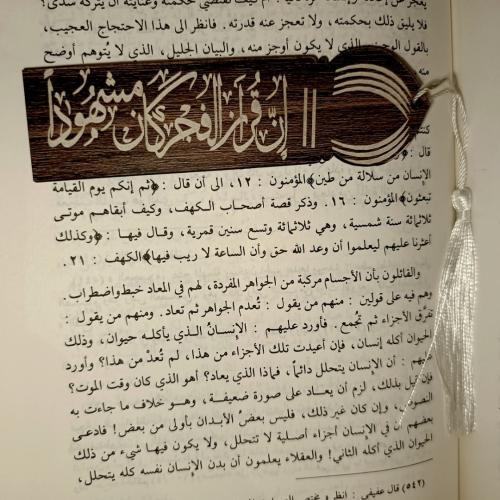 فلا يليق ذلك بحكمته، ولا تعجز عنه قدرته. فانظر الى هذا الاحتجاج العجيب،
بالقول الوجيز، الذي لا يكون أوجز منه، والبيان الجليل، الذي لا يُتوهم أوضح
منه
إنّ قرآن الفجر كان مشهوداً
قال :
الإنسان من سلالة من طين﴾المؤمنون : ١٢، الى أن قال : ﴿ثم إنكم يوم القيامة
تبعثون﴾المؤمنون : ١٦. وذكر قصة أصحاب الكهف، وكيف أبقاهم موتى
ثلاثمائة سنة شمسية، وهي ثلاثمائة وتسع سنين قمرية، وقال فيها : ﴿وكذلك
أعثرنا عليهم ليعلموا أن وعد الله حق وأن الساعة لا ريب فيها﴾الكهف : ٢١.
والقائلون بأن الأجسام مركبة من الجواهر المفردة، لهم في المعاد خبط واضطراب.
وهم فيه على قولين : منهم من يقول : تُعدم الجواهر ثم تعاد. ومنهم من يقول :
تفرّق الأجزاء ثم تجُمع. فأورد عليهم : الإنسانُ الذي يأكله حيوان، وذلك
الحيوان أكله إنسان، فإن أعيدت تلك الأجزاء من هذا، لم تُعدْ من هذا؟ وأورد
عليهم : أن الإنسان يتحلل دائماً، فماذا الذي يعاد؟ أهو الذي كان وقت الموت؟
فإن قيل بذلك، لزم أن يعاد على صورة ضعيفة، وهو خلاف ما جاءت به
النصوص، وإن كان غير ذلك، فليس بعضُ الأبدان بأولى من بعض! فادعى
بعضهم أن في الإنسان أجزاء أصلية لا تتحلل، ولا يكون فيها شيء من ذلك
الحيوان الذي أكله الثاني! والعقلاء يعلمون أن بدن الإنسان نفسه كله يتحلل،
(٥٤٢) قال عفيفي : انظر